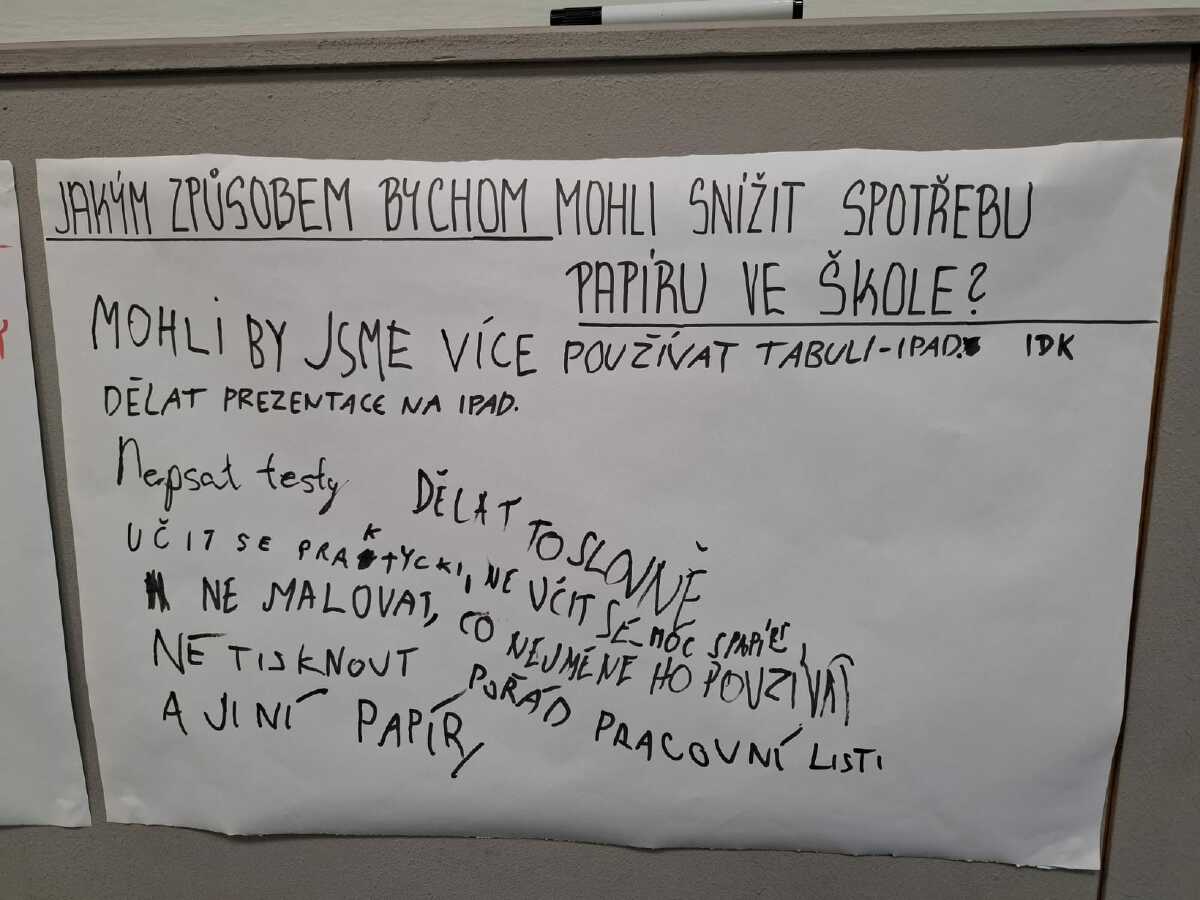 JAKÝM ZPŮSOBEM BYCHOM MOHLI SNÍŽIT SPOTŘEBU
PAPÍRU VE ŠKOLE?
MOHLI BY JSME VÍCE POUŽÍVAT TABULI-IPAD. IDK
DĚLAT PREZENTACE NA IPAD.
Nepsat testy DĚLAT TO SLOVNĚ
UČIT SE PRAKTYCKI, NE UČIT SE MOC
NE MALOVAT, CO NEJMÉNE HO POUZÍVAT
NE TISKNOUT POŘÁD PRACOVNÍ LISTI
A JINÍ PAPÍRY